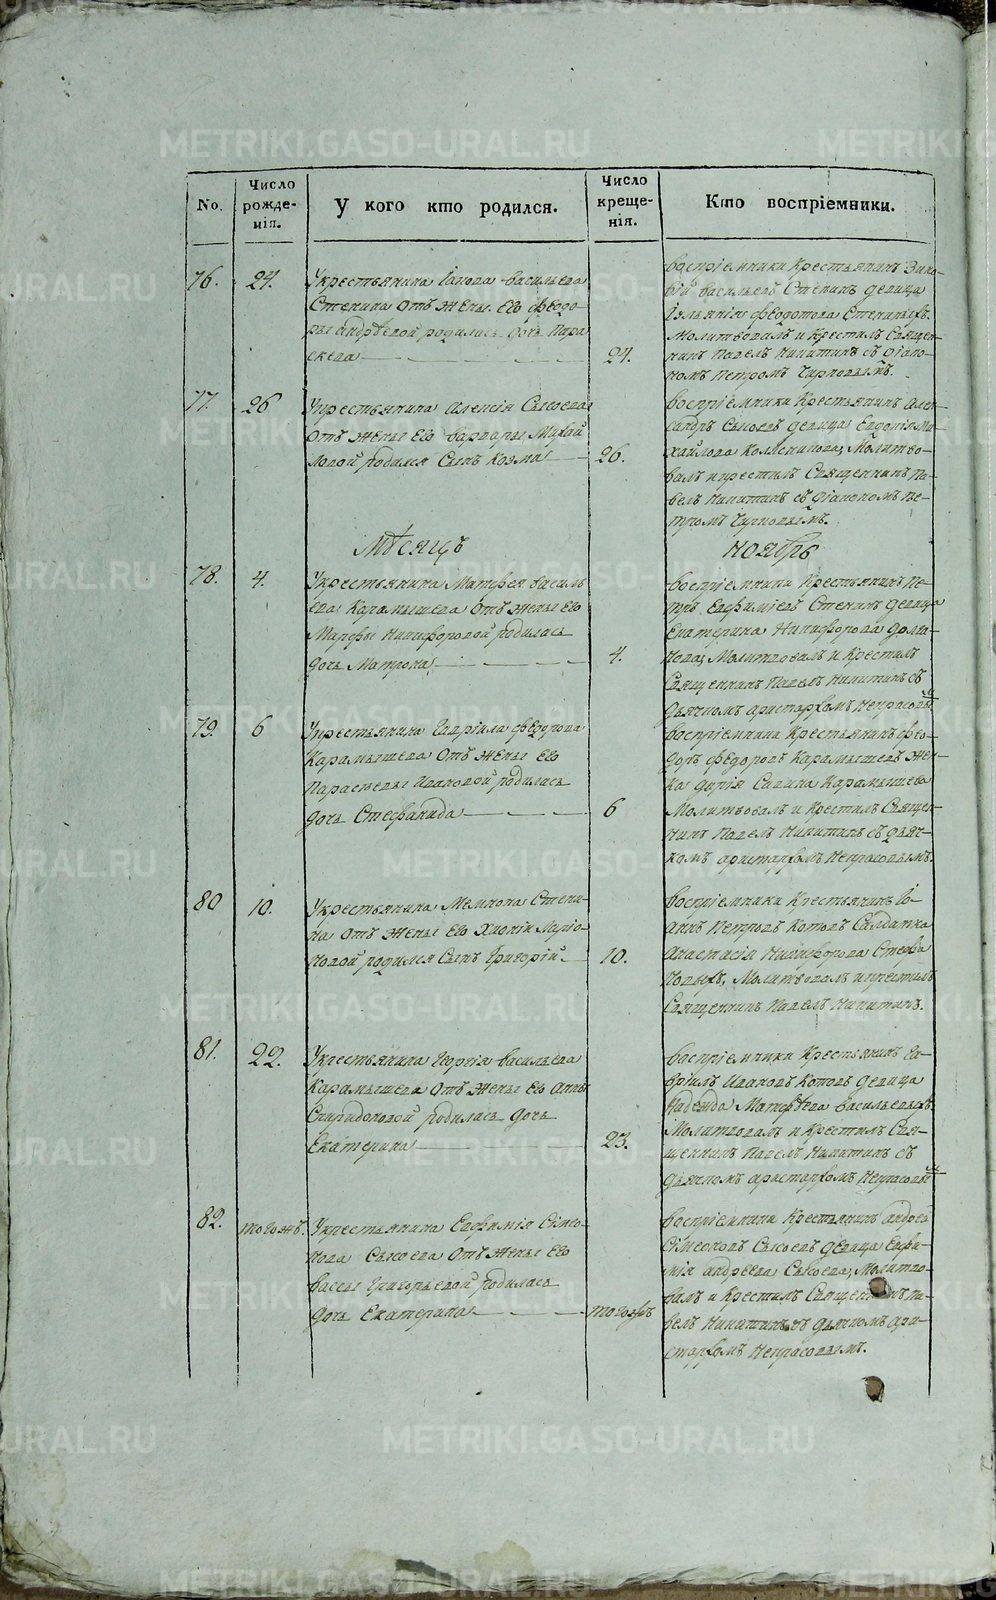 No.
Число рожде-
нія.
У кого кто родился.
Число креще-
нія.
Кто воспріемники.
76.
24.
У крестьянина Іакова Васильева
Стенина отъ жены его Феодо-
ры Андрѣевой родилась дочь Пара
скева
24.
воспріемники крестьянинъ Зино-
вій Васильевъ Стенинъ девица
Іульянія Феодотова Стениныхъ.
Молитвовалъ и крестилъ Священ-
никъ Павелъ Никитинъ съ діако-
номъ Петромъ Чирковымъ.
77.
26
У крестьянина Алексія Сысоева
отъ жены его Варвары Михай
ловой родился сынъ Козма
26.
воспріемники крестьянинъ Алек-
сандръ Сысоевъ девица Евдокія Ми-
хайлова Молитво-
валъ и крестилъ Священникъ Па-
велъ Никитинъ съ діакономъ Пе-
тромъ Чирковымъ.
Мѣсяцъ
Ноябрь
78.
4.
У крестьянина Матфея Василь
ева Карамышева отъ жены его
Марфы Никифоровой родилась
дочь Матрона
4.
воспріемники крестьянинъ Пе-
тръ Евфиміевъ Стенинъ девица
Екатерина Никифорова Долга-
нова, Молитвовалъ и крестилъ
Священникъ Павелъ Никитинъ съ
дьячкомъ Аристархомъ Некрасовым
79.
6
У крестьянина Гавріила Феодорова
Карамышева отъ жены его
Параскевы Ивановой родилась
дочь Стефанида
6
воспріемники крестьянинъ Фео-
доръ Федоровъ Карамышевъ жен-
ка Дарія Савина Карамышева
Молитвовалъ и крестилъ Священ-
никъ Павелъ Никитинъ съ дьяч-
комъ Аристархомъ Некрасовымъ.
80
10.
У крестьянина Мемнона Стени-
на отъ жены его Хионіи Миріо-
новой родился сынъ Григорій
10.
воспріемники крестьянинъ Іо-
аннъ Петровъ Котовъ Салдатка
Анастасія Никифорова Стефа
новыхъ, Молитвовалъ и крестилъ
Священникъ Павелъ Никитинъ.
81.
22.
У крестьянина Георгія Васильева
Карамышева отъ жены его Анны
Спиридоновой родилась дочь
Екатерина
23.
воспріемники крестьянинъ Га-
вріилъ Ивановъ Котовъ девица
Надежда Матфѣева Васильевыхъ
Молитвовалъ и крестилъ Свя-
щенникъ Павелъ Никитинъ съ
дьячкомъ Аристархомъ Некрасовым
82.
тогожъ.
У крестьянина Евфимія Сімео-
нова Сысоева отъ жены его
Вассы Григорьевой родилась
дочь Екатерина
тогожъ
воспріемники крестьянинъ Андрей
Сімеоновъ Сысоевъ девица Евфи-
мія Андреева Сысоева, Молитво-
валъ и крестилъ Священникъ Па-
велъ Никитинъ съ дьячкомъ Ари-
стархомъ Некрасовымъ.
METRIKI.GASO-URAL.RU